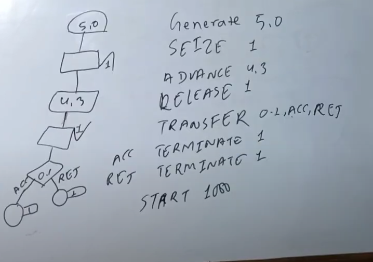 5,0
1
4,3
1
ACC 0.1 REJ
1 1
Generate 5,0
SEIZE 1
ADVANCE 4,3
RELEASE 1
TRANSFER 0.1,ACC,REJ
ACC TERMINATE 1
REJ TERMINATE 1
START 1000